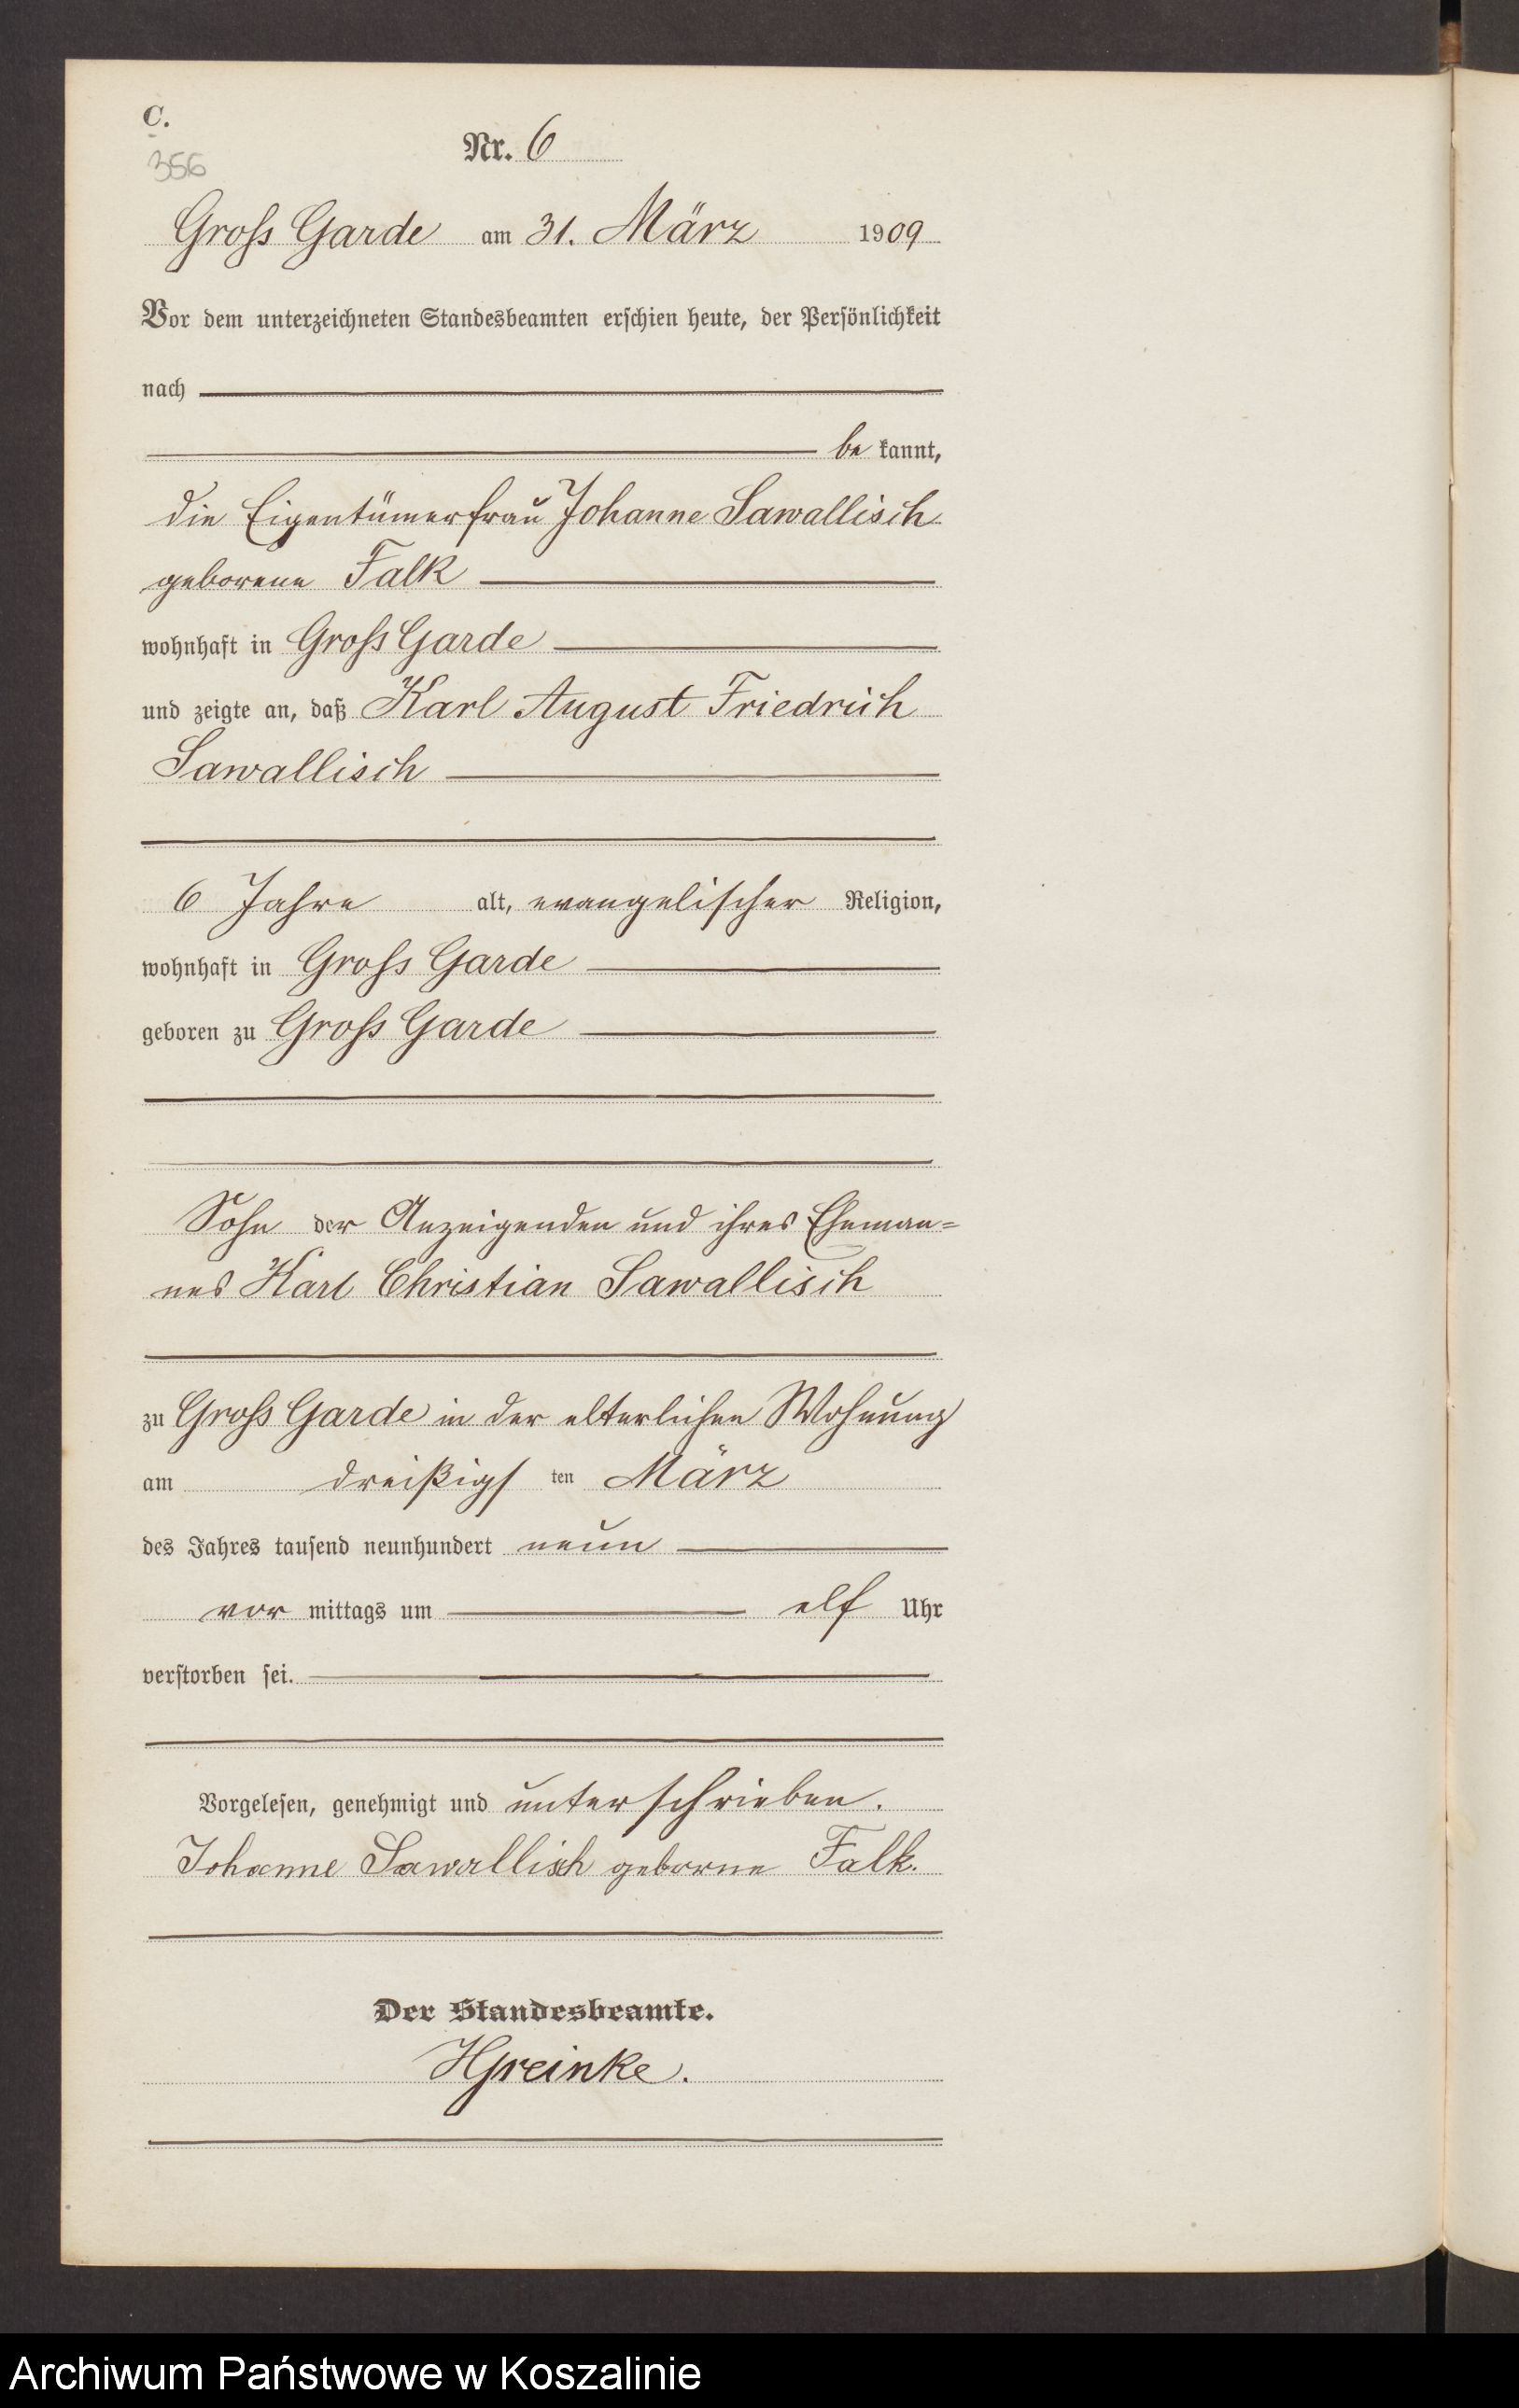 C.
356
Nr. 6
Gross Garde am 31. März 1909
Vor dem unterzeichneten Standesbeamten erschien heute, der Persönlichkeit
nach
be kannt,
die Eigentümerfrau Johanne Sawallisch
geborene Falk
wohnhaft in Gross Garde
und zeigte an, daß Karl August Friedrich
Sawallisch
6 Jahre alt, evangelischer Religion,
wohnhaft in Gross Garde
geboren zu Gross Garde
Sohn der Anzeigenden und ihres Eheman=
nes Karl Christian Sawallisch
zu Gross Garde in der elterlichen Wohnung
am dreißigs ten März
des Jahres tausend neunhundert neun
vor mittags um elf Uhr
verstorben sei.
Vorgelesen, genehmigt und unterschrieben.
Johanne Sawallisch geborne Falk.
Der Standesbeamte.
Archiwum Państwowe w Koszalinie